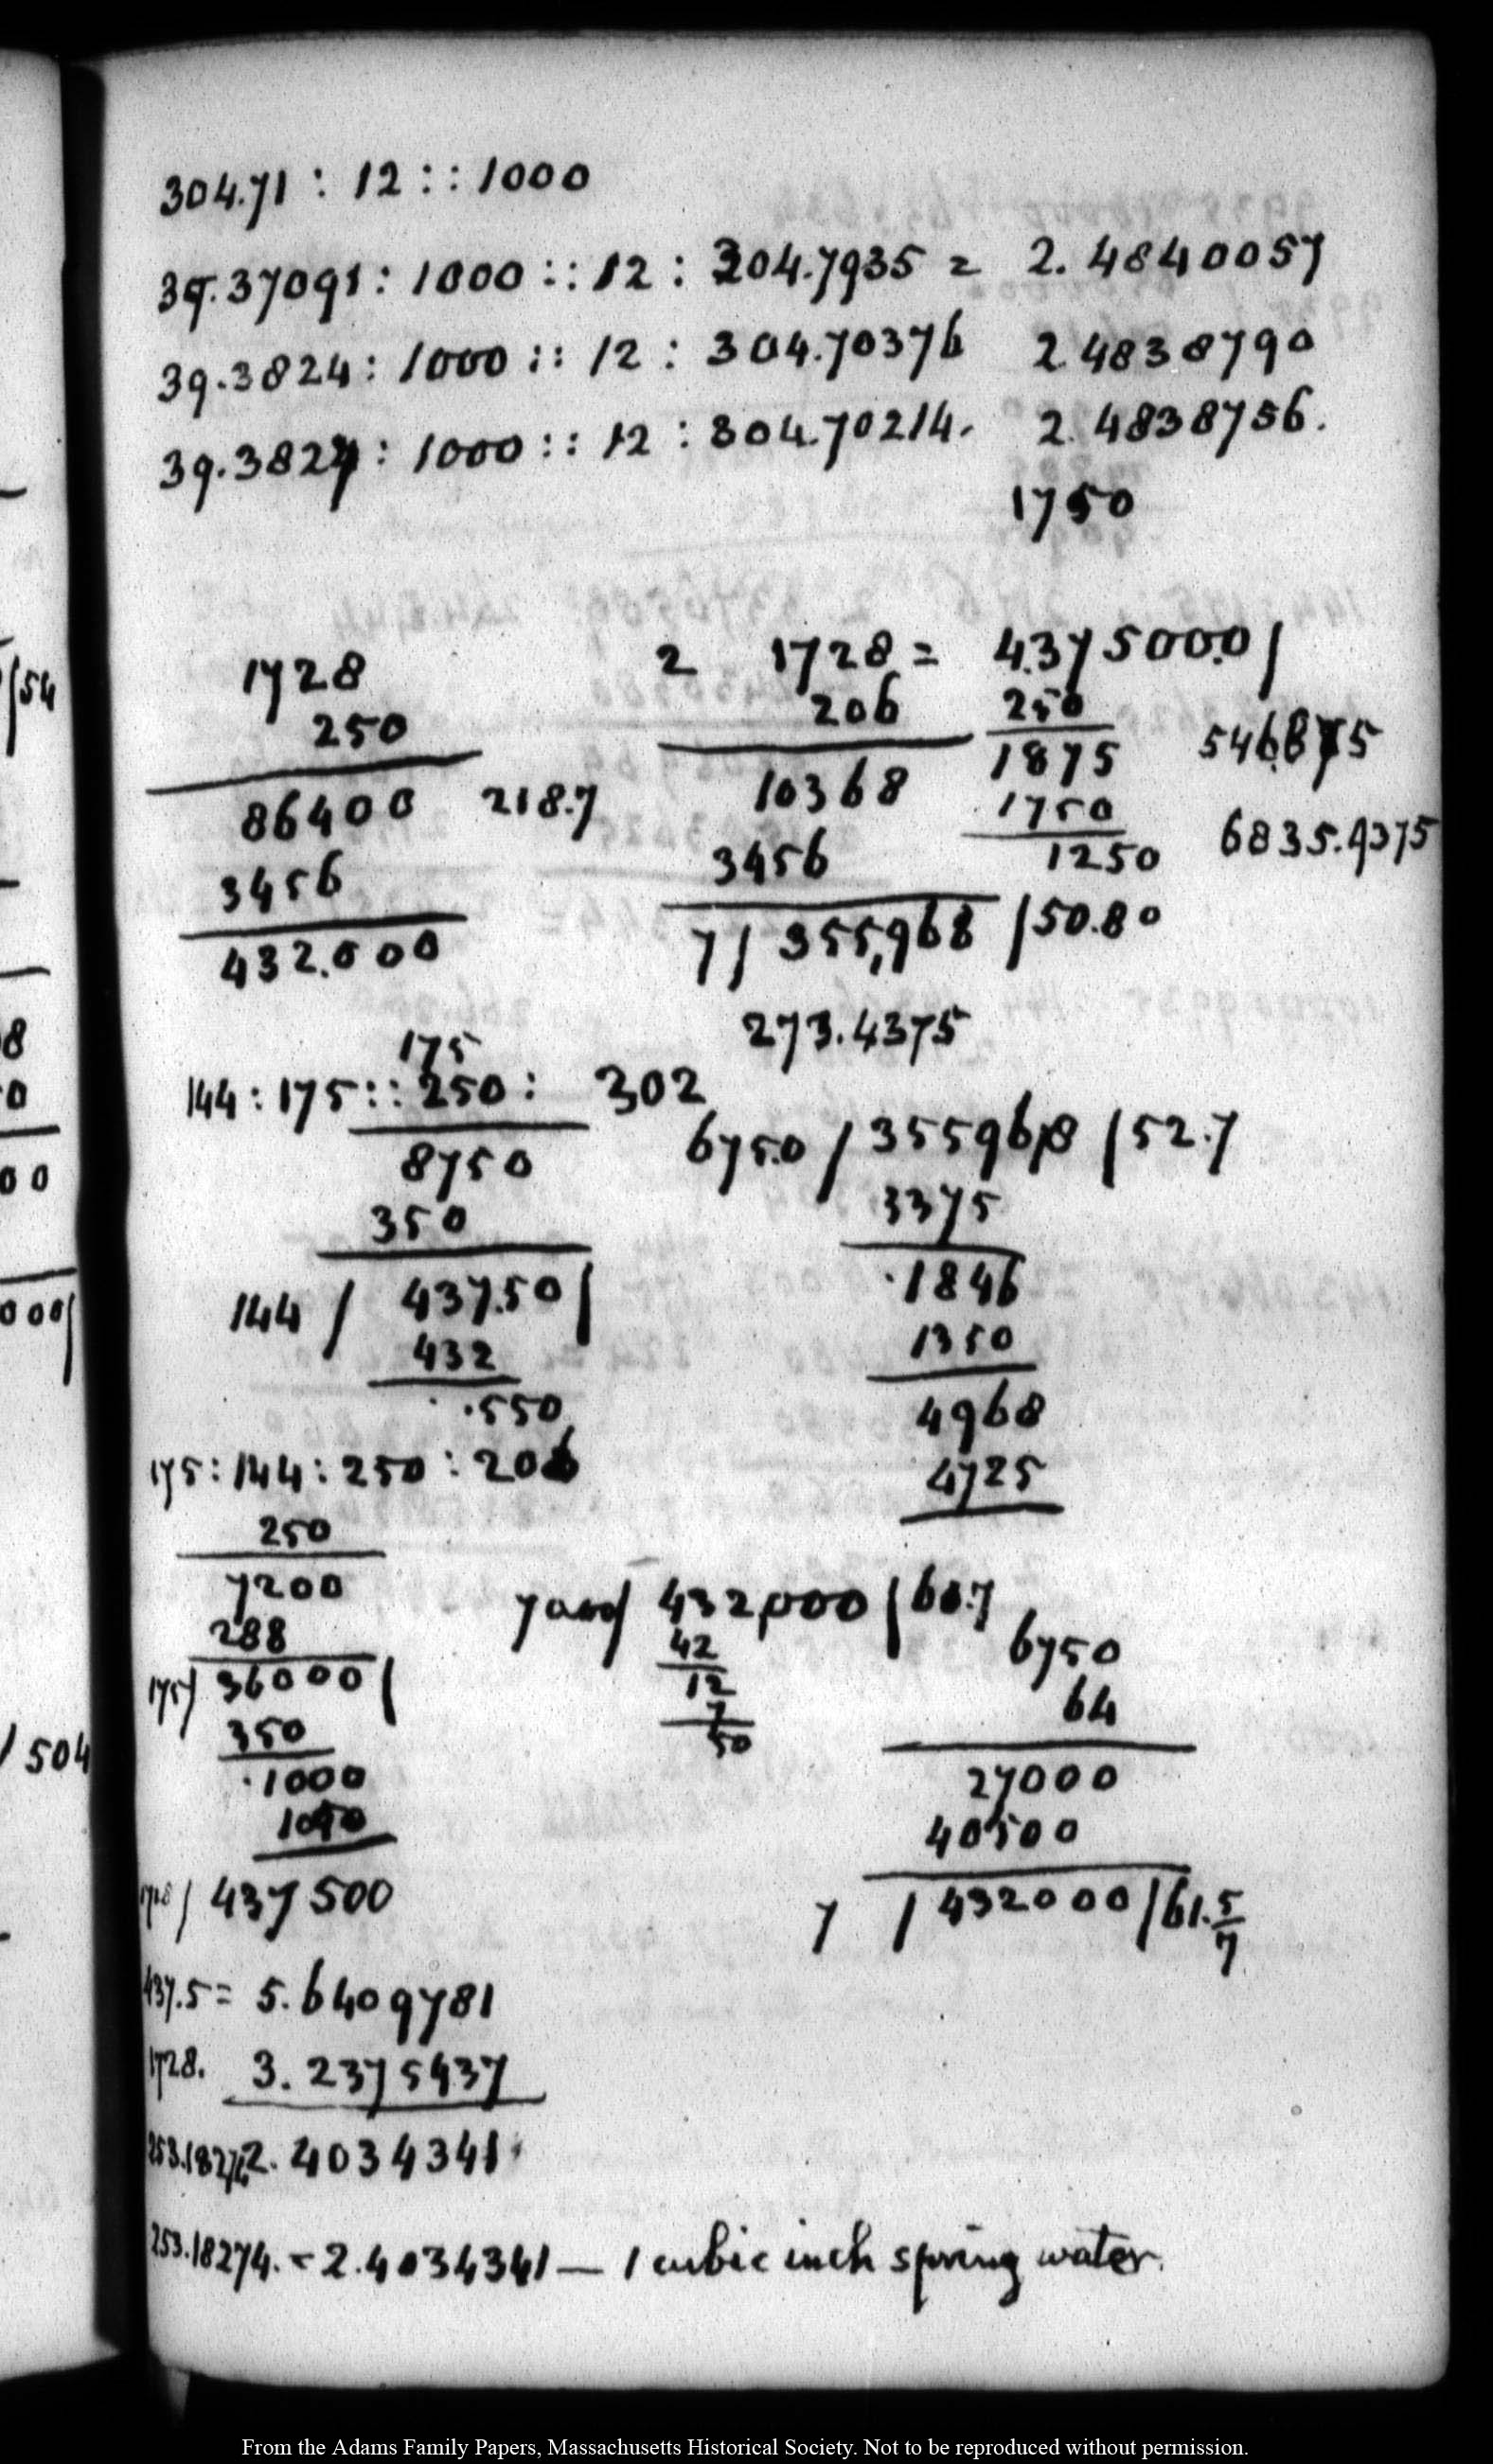 304.71 : 12 :: 1000
39.37091 : 1000 :: 12 : 304.7935 = 2.4840057
39.3824 : 1000 :: 12 : 304.70376 2.4838790
39.3827 : 1000 :: 12 : 304.70214. 2.4838756.
1750
1728
250
86400 218.7
3456
432.000
2 1728 = 437500.0/
206 250
10368 1875 546.875
3456 1750
1250 6835.9375
7/ 355,968 /50.80
273.4375
175
144 : 175 :: 250 : 302
8750
350
144 / 437.50/
432
.550
675.0 / 355968 /52.7
3375
.1846
1350
4968
4725
175 : 144 : 250 : 206
250
7200
288
175/ 36000/
350
.1000
1050
7000/ 432,000 /61.7
42
12
7
50
6750
64
27000
40500
7 /432000/61.5/7
1728/ 437500
437.5 = 5.6409781
1728. 3.2375437
253.18274 2.4034341
253.18274. = 2.4034341 — 1 cubic inch spring water.
54
8
0
00
000/
/504
From the Adams Family Papers, Massachusetts Historical Society. Not to be reproduced without permission.